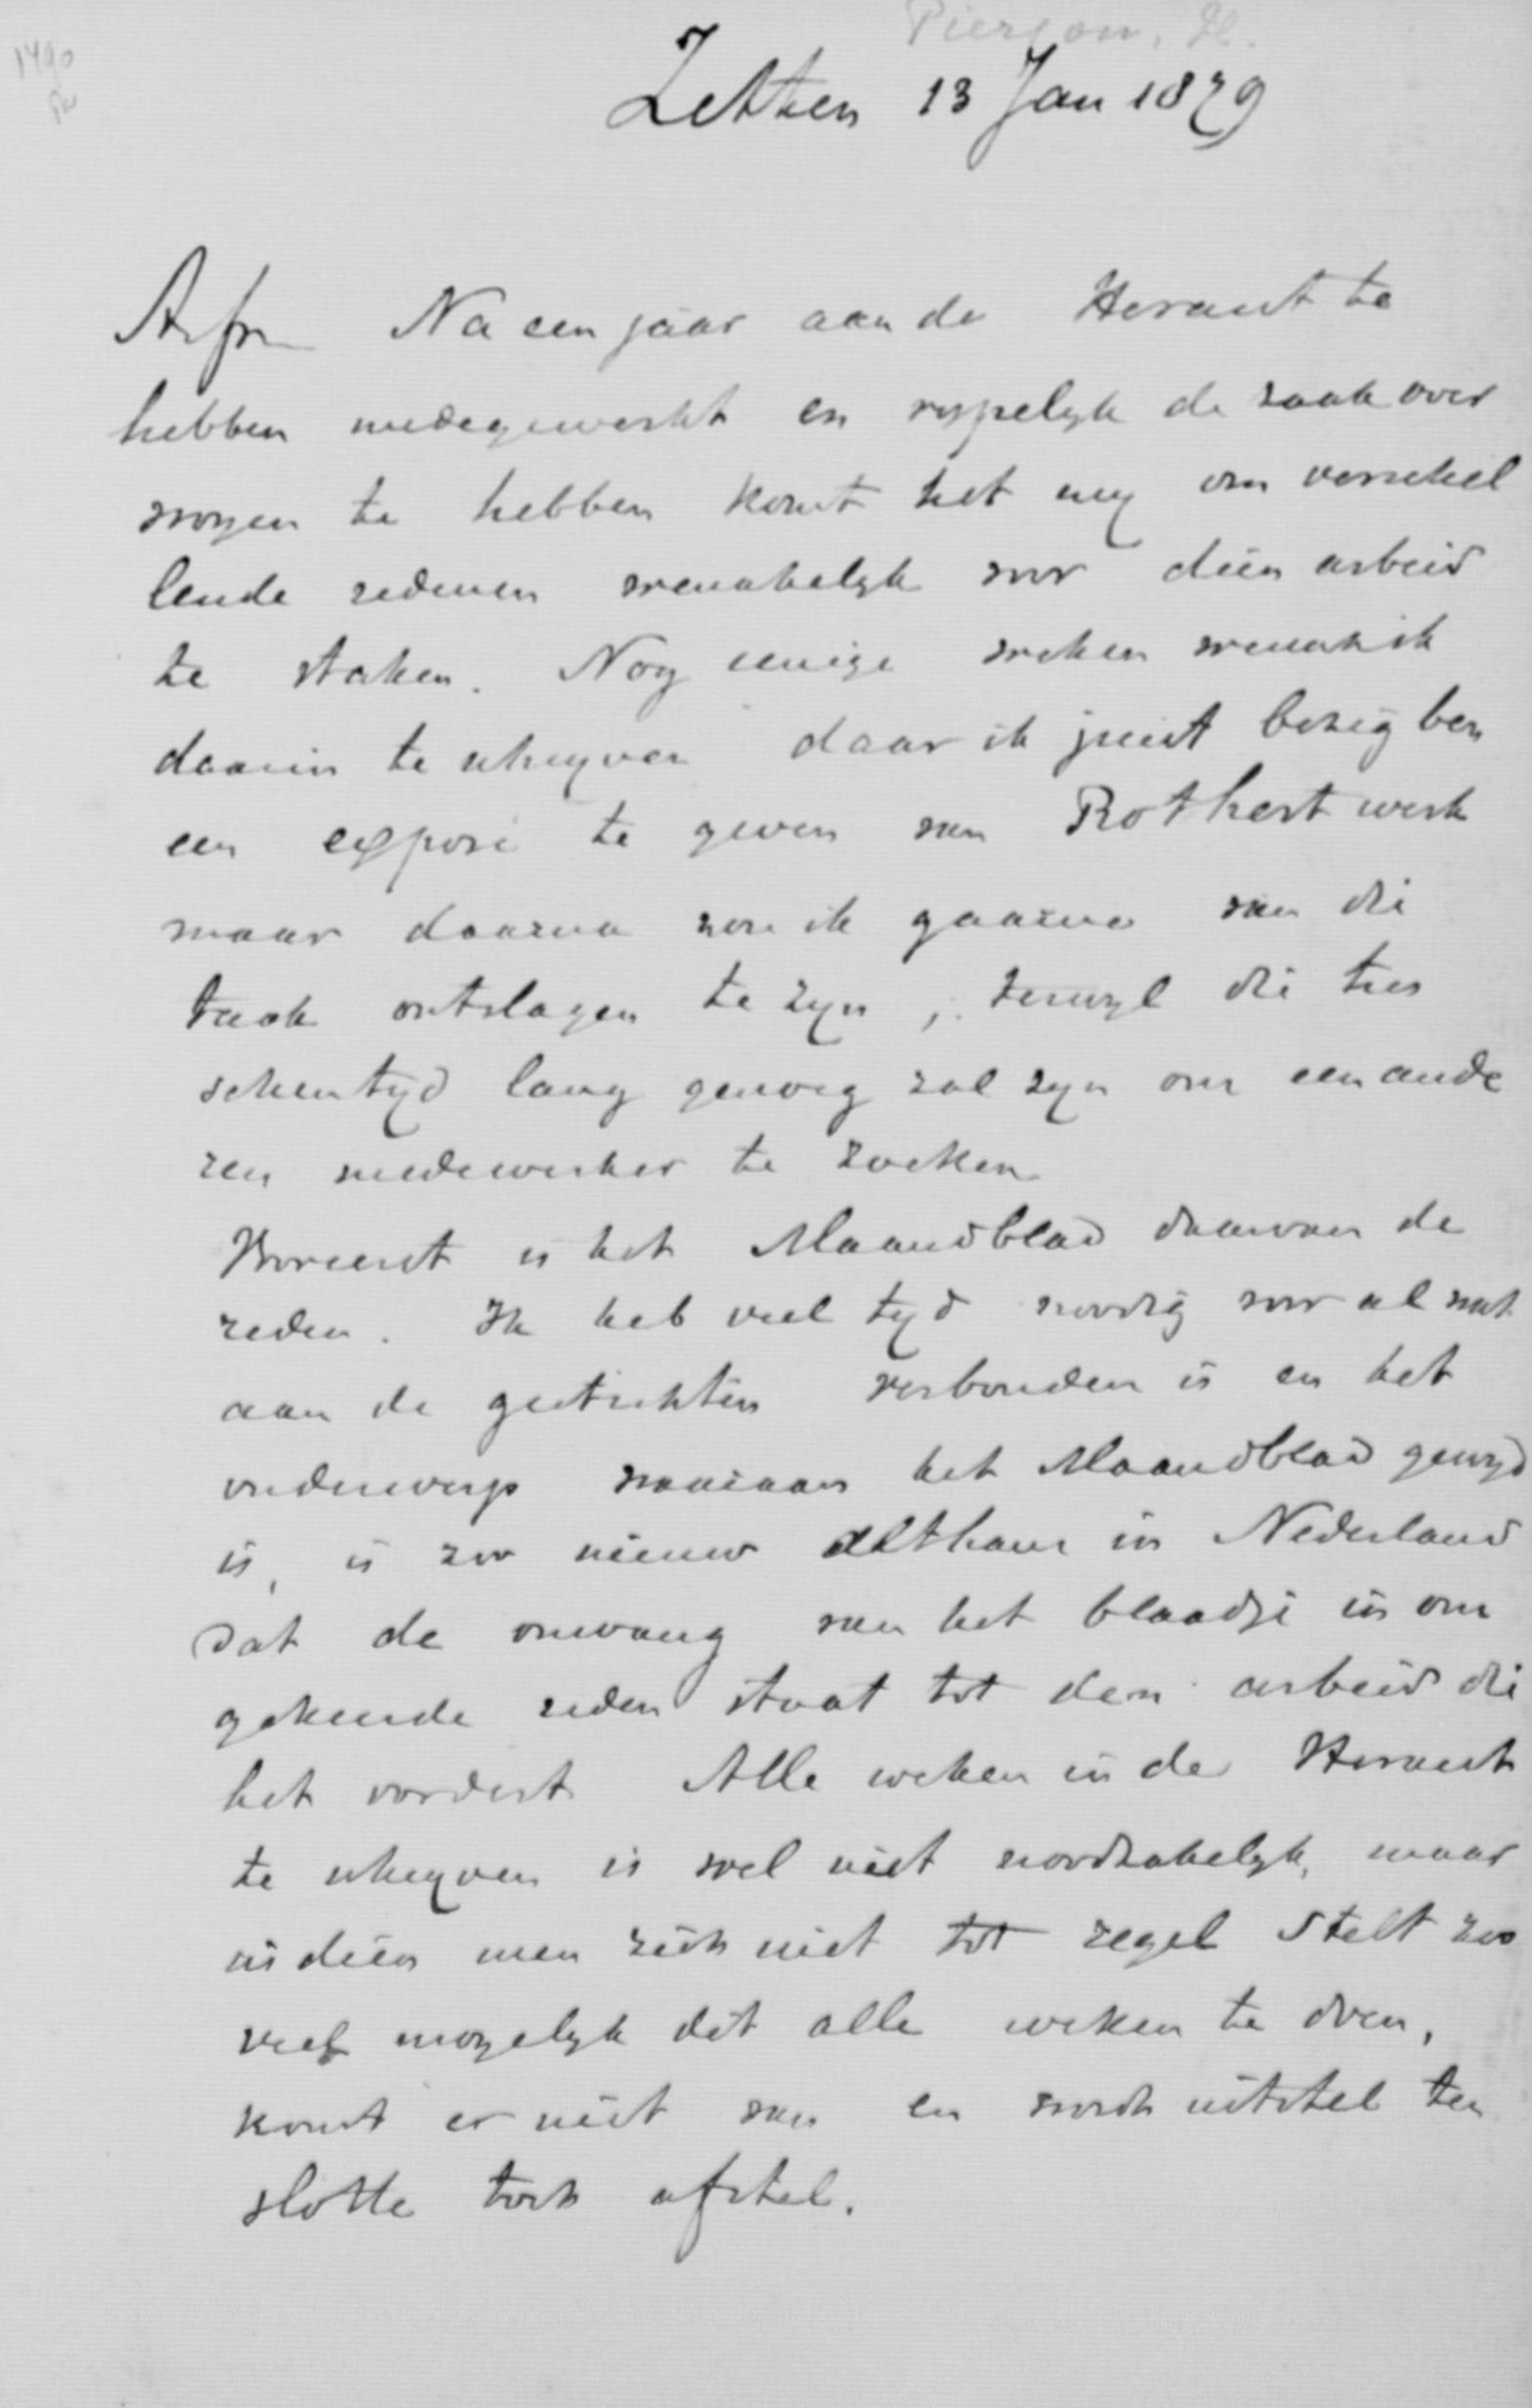 1490
Pierson, H.
Zetten 13 Jan 1879
Afr Na een jaar aan de Heraut te
hebben medegewerkt en rypelyk de zaak over
wogen te hebben komt het my om verschil
lende redenen wenschelyk voor dien arbeid
te staken. Nog eenige weken wensch ik
daarin te schryven daar ik juist bezig ben
een exposé te geven van Rothest werk
maar daarna zou ik gaarne van die
taak ontslagen te zyn, terwyl die tus
schentyd lang genoeg zal zyn om een ande
ren medewerker te zoeken
Vooreerst is het Maandblad daarvan de
reden. Ik heb veel tyd noodig voor al wat
aan de gestichten verbonden is en het
onderwerp waaraan het Maandblad gewyd
is, is zoo nieuw althans in Nederland
dat de omvang van het blaadje in om
gekeerde reden staat tot den arbeid die
het vordert Alle weken in de Heraut
te schryven is wel niet noodzakelyk, maar
indien men zich niet tot regel stelt zoo
veel mogelyk dit alle weken te doen,
komt er niet van en wordt uitstel ten
slotte toch afstel.